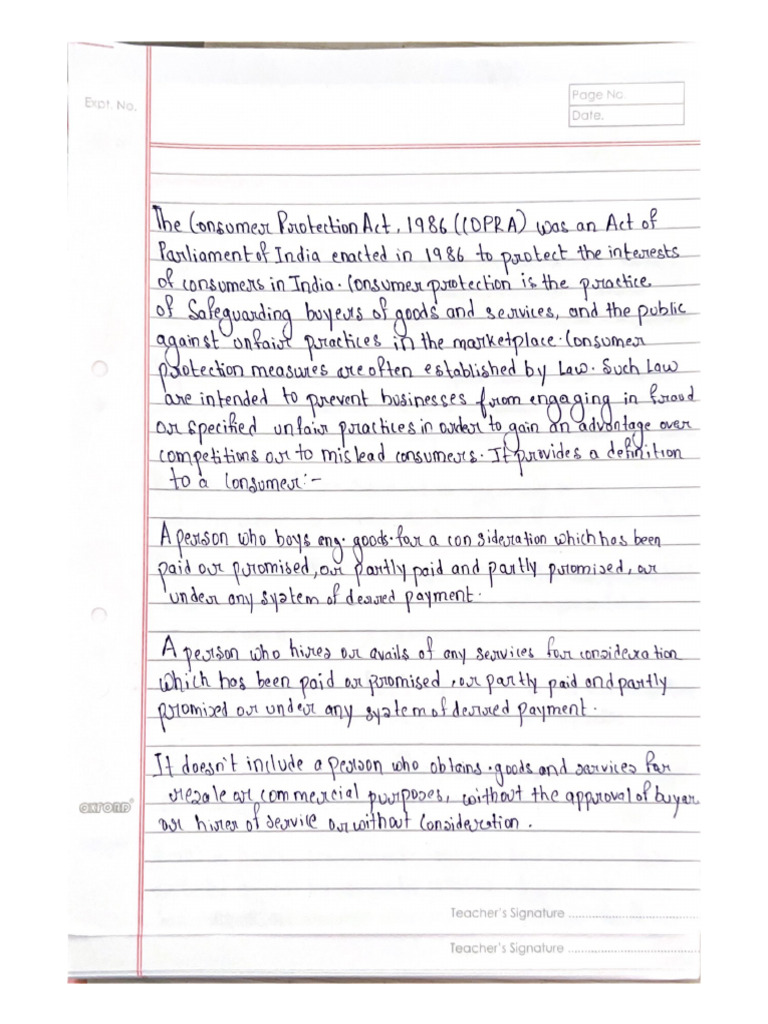 Expt. No.
Page No.
Date.
The Consumer Protection Act, 1986 (COPRA) was an Act of
Parliament of India enacted in 1986 to protect the interests
of consumers in India. Consumer protection is the practice
of Safeguarding buyers of goods and services, and the public
against unfair practices in the marketplace. Consumer
protection measures are often established by Law. Such Law
are intended to prevent businesses from engaging in fraud
or specified unfair practices in order to gain an advantage over
competitions or to mislead consumers. It provides a definition
to a Consumer :-
A person who boys eng. goods. for a consideration which has been
paid or promised, or partly paid and partly promised, or
under any system of deured payment.
A person who hires or avails of any services for consideration
which has been paid or promised, or partly paid and partly
promised or under any system of deured payment.
It doesn't include a person who obtains. goods and services for
resale or commercial purposes, without the approval of buyer
OXFORD
or hirer of service or without Consideration.
Teacher's Signature
Teacher's Signature